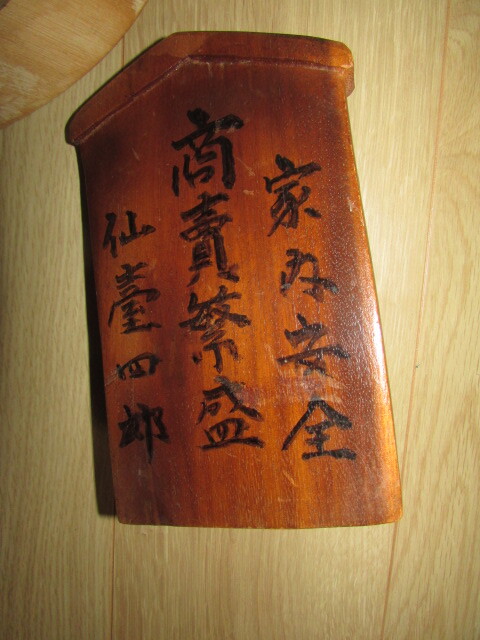 家内安全
商賣繁盛
仙臺四郎